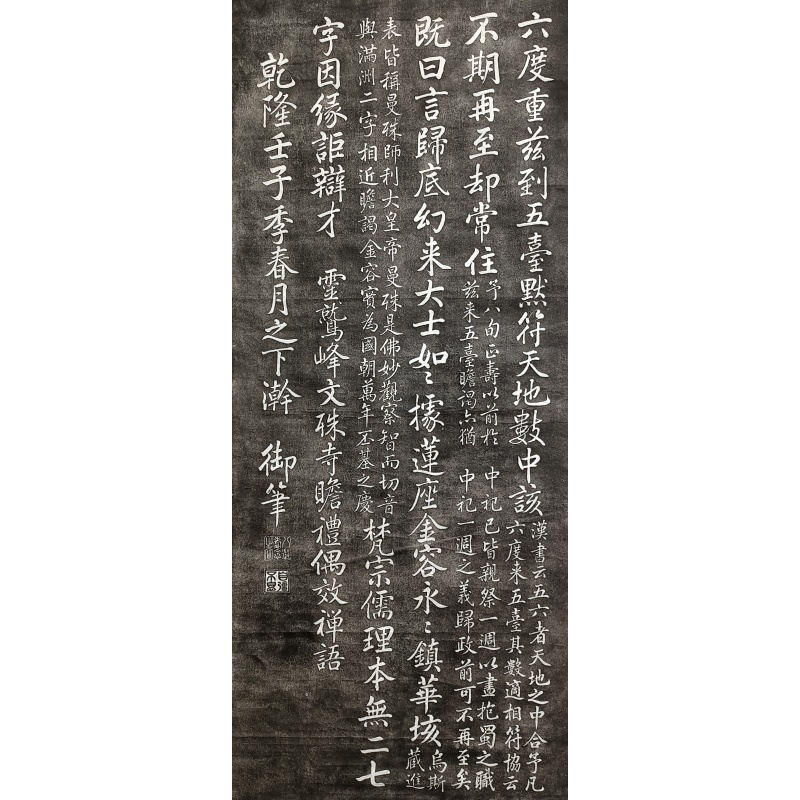 六度重兹到五臺默符天地數中該
漢書云五六者天地之中合予凡
六度来五臺其數適相符協云
不期再至却常住
予八旬正壽以前於 中祀已皆親祭一週以盡抱蜀之職
兹来五臺瞻謁亦猶 中祀一週之義歸政前可不再至矣
既曰言歸底幻来大士如〻據蓮座金容永〻鎮華垓
烏斯
藏進
表皆稱曼殊師利大皇帝曼殊是佛妙觀察智而切音
與滿洲二字相近瞻謁金容實為國朝萬年丕基之慶
梵宗儒理本無二七
字因緣詎辯才 靈鷲峰文殊寺瞻禮偶效禅語
乾隆壬子季春月之下澣 御筆